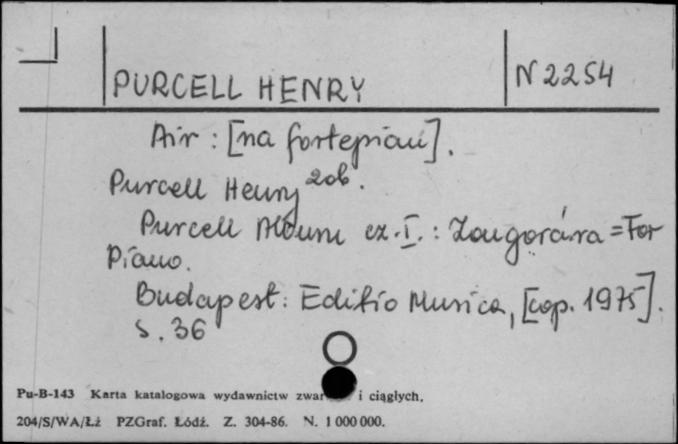 PURCELL HENRY
N 2254
Air : [na fortepian].
Purcell Henry zob.
Purcell Album cz. I. : Zongorára = For
Piano.
Budapest : Editio Musica, [cop. 1975].
S. 36
Pu-B-143 Karta katalogowa wydawnictw i ciągłych.
204/S/WA/Łż PZGraf. Łódź. Z. 304-86. N. 1 000 000.